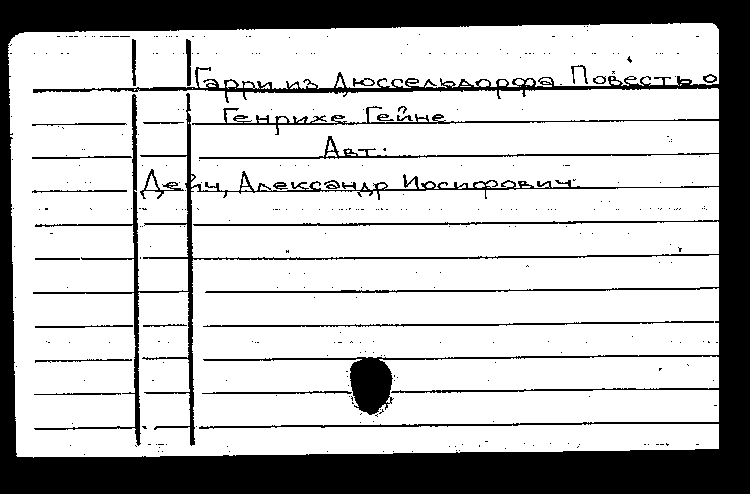 Гарри из Дюссельдорфа Повесть о
Генрихе Гейне
Авт.:
Дейч, Александр Иосифович.